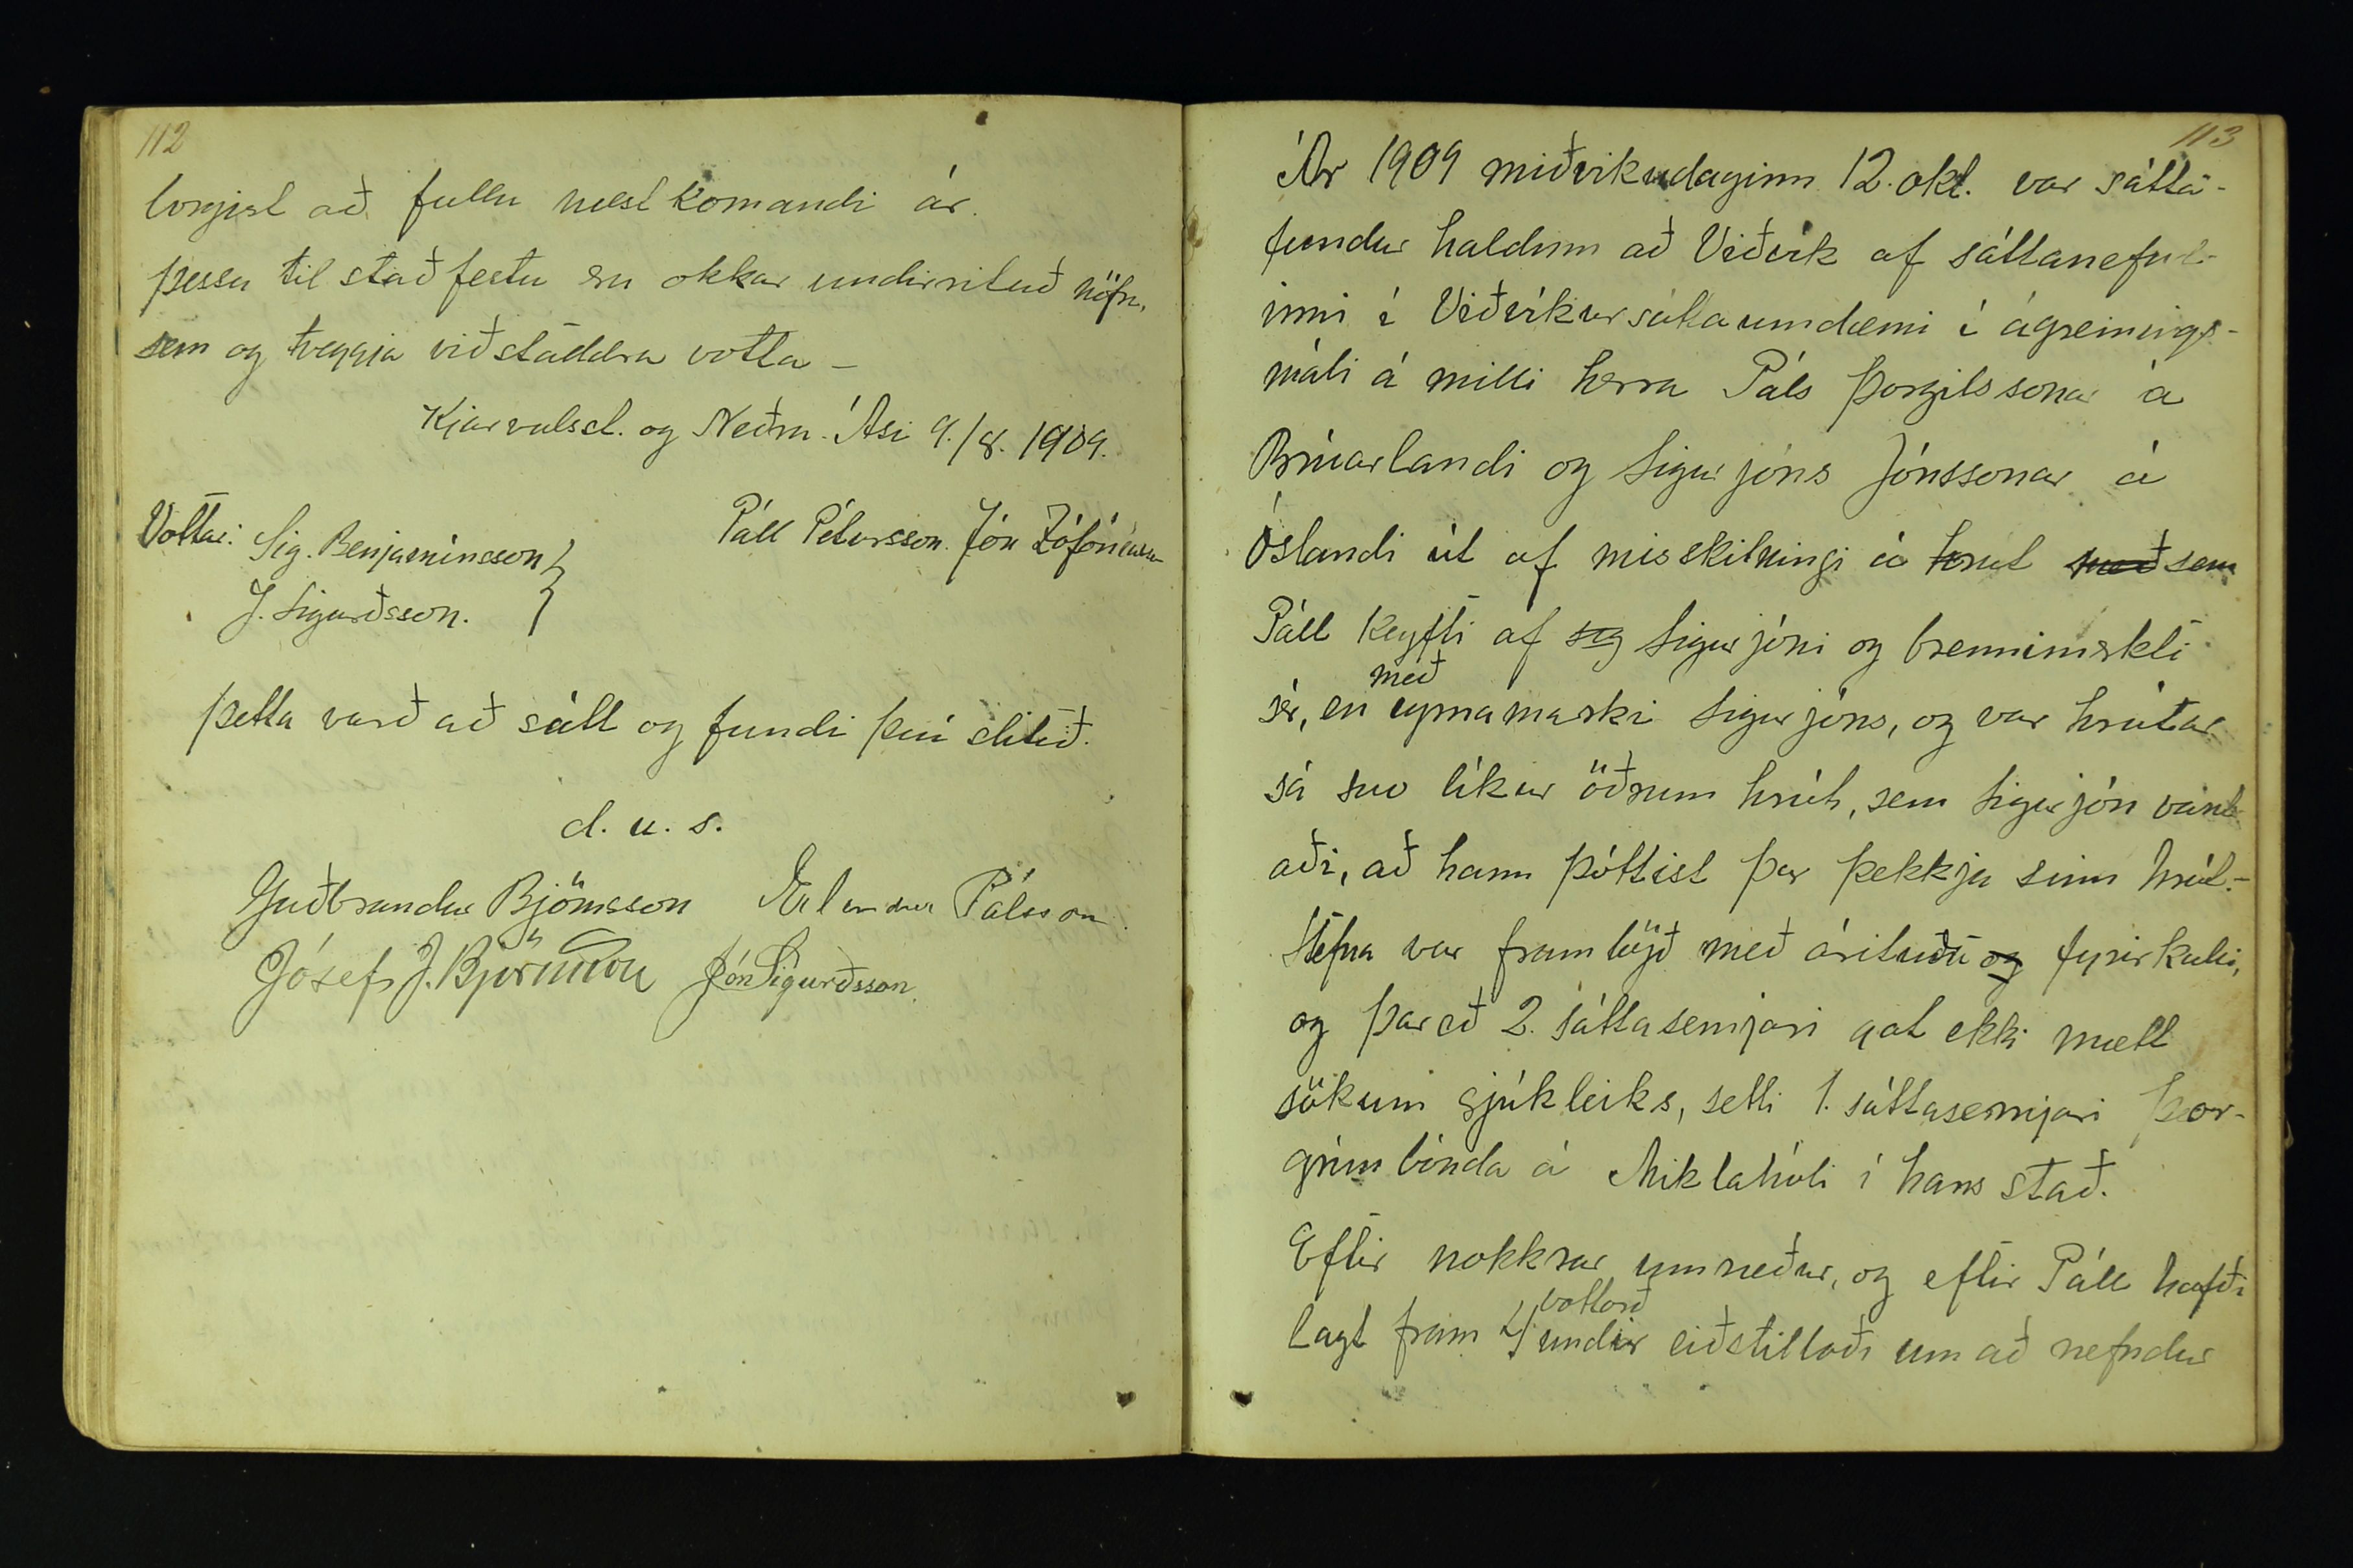 112
borgist að fullu næst komandi ár.
Þessu til staðfestu eru okkar undirrituð nöfn,
sem og tveggja viðstaddra votta –
Kjarvalsst. og Neðra-Ási 9./8. 1909.
Páll Pétursson. Jón Zófóníasson
Vottar: Sig. Benjamínsson
J. Sigurðsson.
Þetta varð að sátt og fundi því slitið.
d. u. s.
Guðbrandur Björnsson Erlendur Pálsson
Jósef J. Björnsson Jón Sigurðsson
113
Ár 1909 miðvikudaginn 12. okt. var sátta-
fundur haldinn að Viðvík af sáttanefnd-
inni í Viðvíkursáttaumdæmi í ágreinings-
máli á milli herra Páls Þorgilssonar á
Brúarlandi og Sigurjóns Jónssonar á
Óslandi út af misskilningi á hrút með sem
Páll keyfti af sig Sigurjóni og brennimerkti
sér, en með eyrnamarki Sigurjóns, og var hrútur
sá svo líkur öðrum hrút, sem Sigurjón vant-
aði, að hann þóttist þar þekkja sinn hrút.-
Stefna var framlögð með árituðu og fyrirkalli,
og þareð 2. sáttasemjari gat ekki mætt
sökum sjúkleiks, setti 1. sáttasemjari Þor-
grím bónda á Miklahóli í hans stað.
Eftir nokkrar umræður, og eftir Páll hafði
lagt fram 4 vottorð undir eiðstilboði um að nefndur